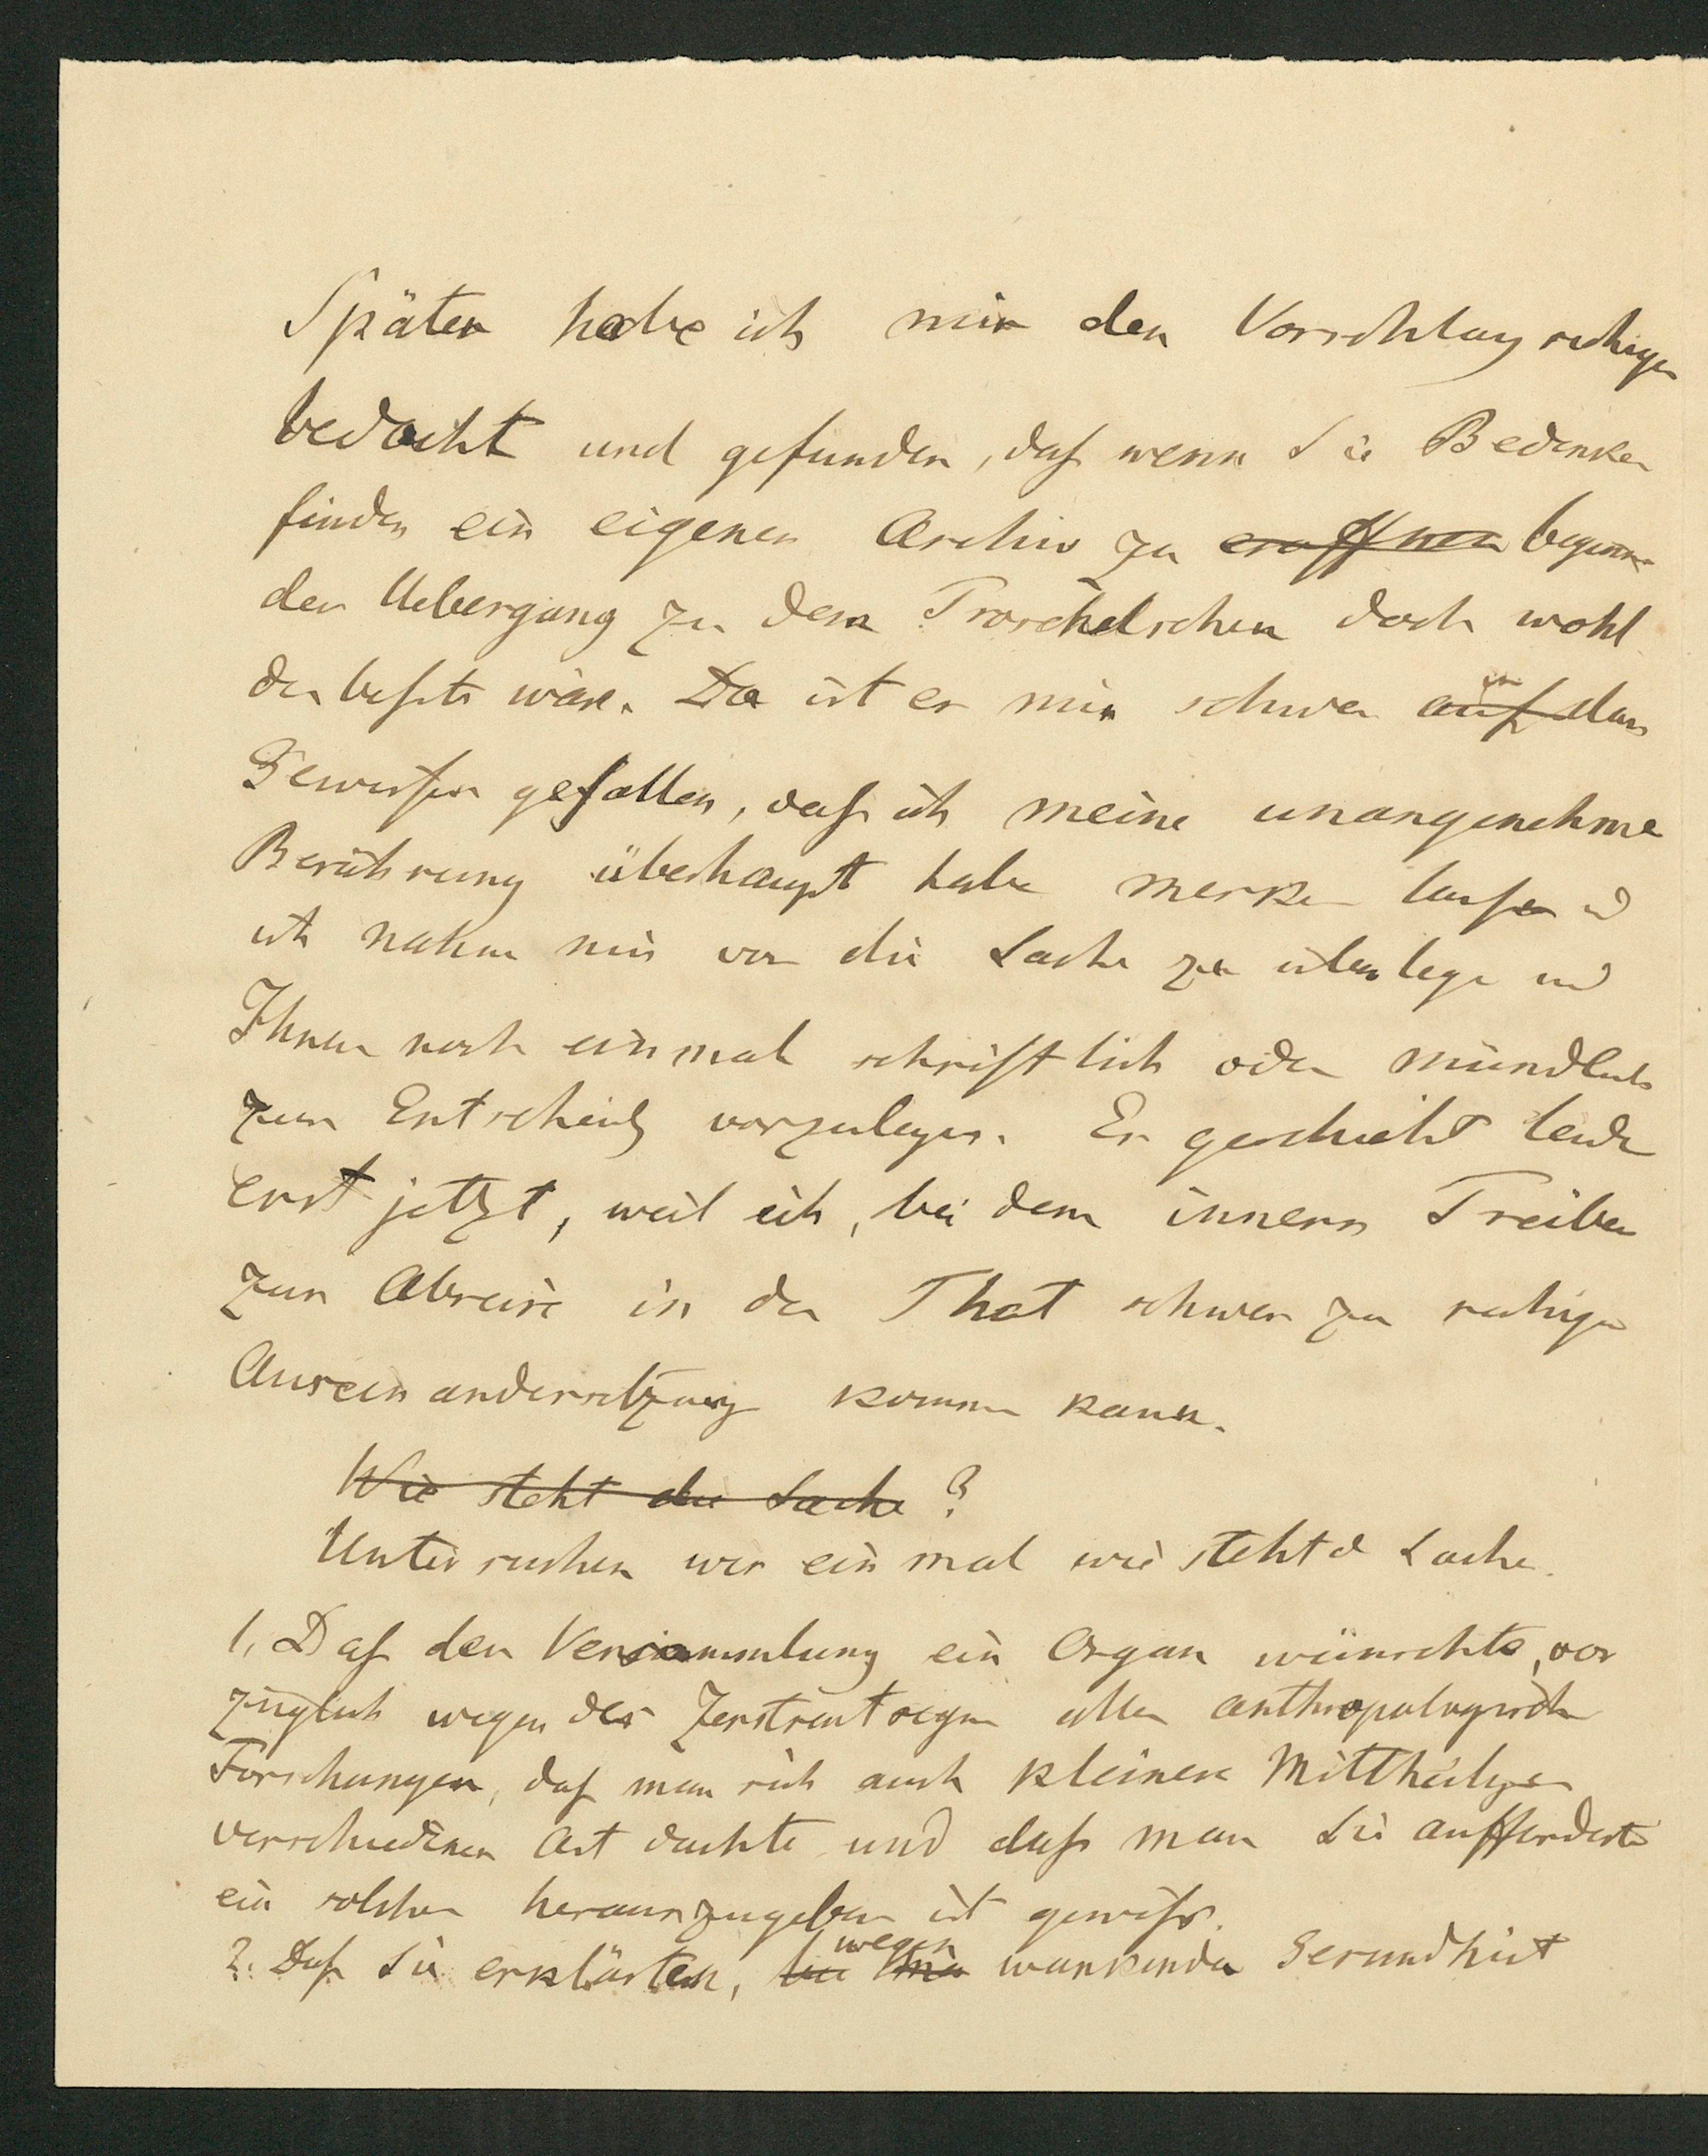 Später habe ich mir den Vorschlag ruhiger
bedacht und gefunden, daß wenn Sie Bedenken
finden ein eigenes Archiv zu eroffnen beginnen
der Uebergang zu dem Troschelschen doch wohl
der beßte wäre. Da ist es mir schwer auf das
Gewissen gefallen, daß ich meine unangenehme
Berührung überhaupt habe merken lassen und
ich nahm mir vor die Sache zu überlegen und
Ihnen noch einmal schriftlich oder mündlich
zur Entscheidg vorzulegen. Es geschieht leider
erst jetzt, weil ich, bei dem innern Treiben
zur Abreise in der That schwer zu ruhiger
Auseinandersetzung kommen kann.
Wie steht die Sache?
Untersuchen wir einmal wie steht d Sache.
1. Daß der Versammlung ein Organ wünschte, vor
züglich wegen des Zerstreutseyns aller anthropologischen
Forschungen, daß man sich auch kleinere Mittheilgen
verschiedener Art dachte und daß man Sie aufforderte
ein solches herauszugeben ist gewiß.
2. Daß Sie erklärten, bei wegen wankender Gesundheit